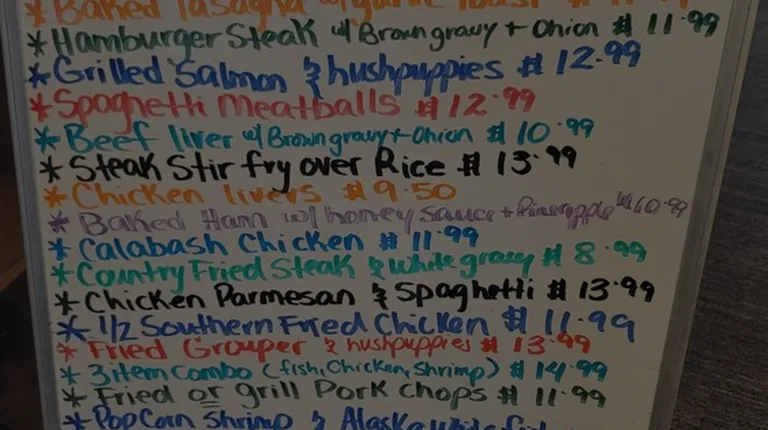 * Baked lasagna w/ garlic toast $ 11.99
* Hamburger Steak w/ Brown gravy + Onion $ 11.99
* Grilled Salmon & hushpuppies $ 12.99
* Spaghetti Meatballs $ 12.99
* Beef liver w/ Brown gravy + Onion $ 10.99
* Steak Stir fry over Rice $ 13.99
* Chicken livers $ 9.50
* Baked Ham w/ honey sauce + Pineapple $ 10.99
* Calabash Chicken $ 11.99
* Country Fried Steak & white gravy $ 8.99
* Chicken Parmesan & Spaghetti $ 13.99
* 1/2 Southern Fried Chicken $ 11.99
* Fried Grouper & hushpuppies $ 13.99
* 3 item Combo (fish, Chicken, Shrimp) $ 14.99
* Fried or grill Pork Chops $ 11.99
* PopCorn Shrimp & Alaska White fish